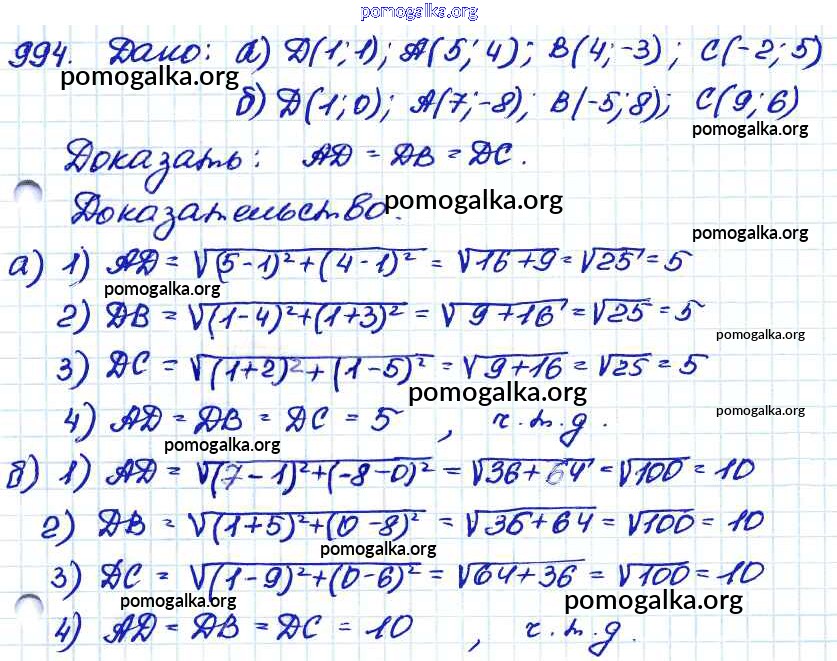 pomogalka.org
994. Дано: а) D(1;1); A(5;4); B(4;-3); C(-2;5)
pomogalka.org
б) D(1;0); A(7;-8); B(-5;8); C(9;6)
pomogalka.org pomogalka.org
Доказать: AD = DB = DC.
Доказательство: pomogalka.org
pomogalka.org
а) 1) AD = √(5-1)²+(4-1)² = √16+9 = √25 = 5
pomogalka.org
2) DB = √(1-4)²+(1+3)² = √9+16 = √25 = 5
pomogalka.org
3) DC = √(1+2)²+(1-5)² = √9+16 = √25 = 5
pomogalka.org
4) AD = DB = DC = 5, ч.т.д.
pomogalka.org pomogalka.org
б) 1) AD = √(7-1)²+(-8-0)² = √36+64 = √100 = 10
2) DB = √(1+5)²+(0-8)² = √36+64 = √100 = 10
pomogalka.org
3) DC = √(1-9)²+(0-6)² = √64+36 = √100 = 10
pomogalka.org pomogalka.org
4) AD = DB = DC = 10, ч.т.д.